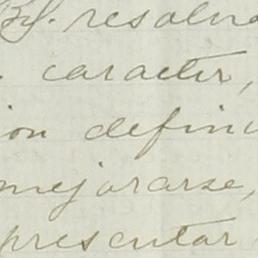 resolv
caracter,
ion defini
mejorarse,
presentar